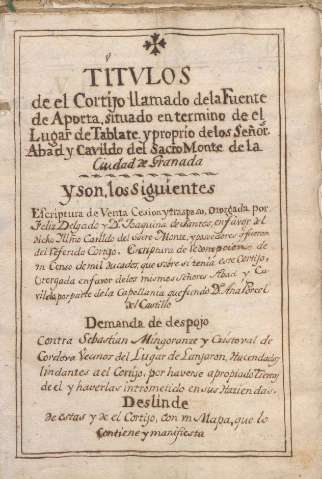 TITVLOS
de el Cortijo llamado dela Fuente
de Aporta, situado en termino de el
Lugar de Tablate, y proprio de los Señor.
Abad y Cavildo del Sacro Monte de la
Ciudad de Granada
Y son, los Siguientes
Escriptura de Venta Cesion y traspaso, Otorgada por
Feliz Delgado y Dª. Joaquina de Santos, en favor del
dicho Illmo Cavildo del Sacro Monte, y poseedores q fueron
del referido Cortijo. Escriptura de redempcion de
un Censo de mil ducados, que sobre si tenia este Cortijo,
Otorgada en favor de los mismos Señores Abad y Ca-
vildo por parte de la Capellania que fundo Dª. Ana Porcel
del Castillo
Demanda de despojo
Contra Sebastian Mingorance y Cristoval de
Cordova Vecinos del Lugar de Lanjaron, Hacendados
lindantes a el Cortijo, por haverse apropiado tierras
de el y haverlas intrometido en sus Haziendas.
Deslinde
de estas y de el Cortijo, con un Mapa, que lo
contiene y manifiesta